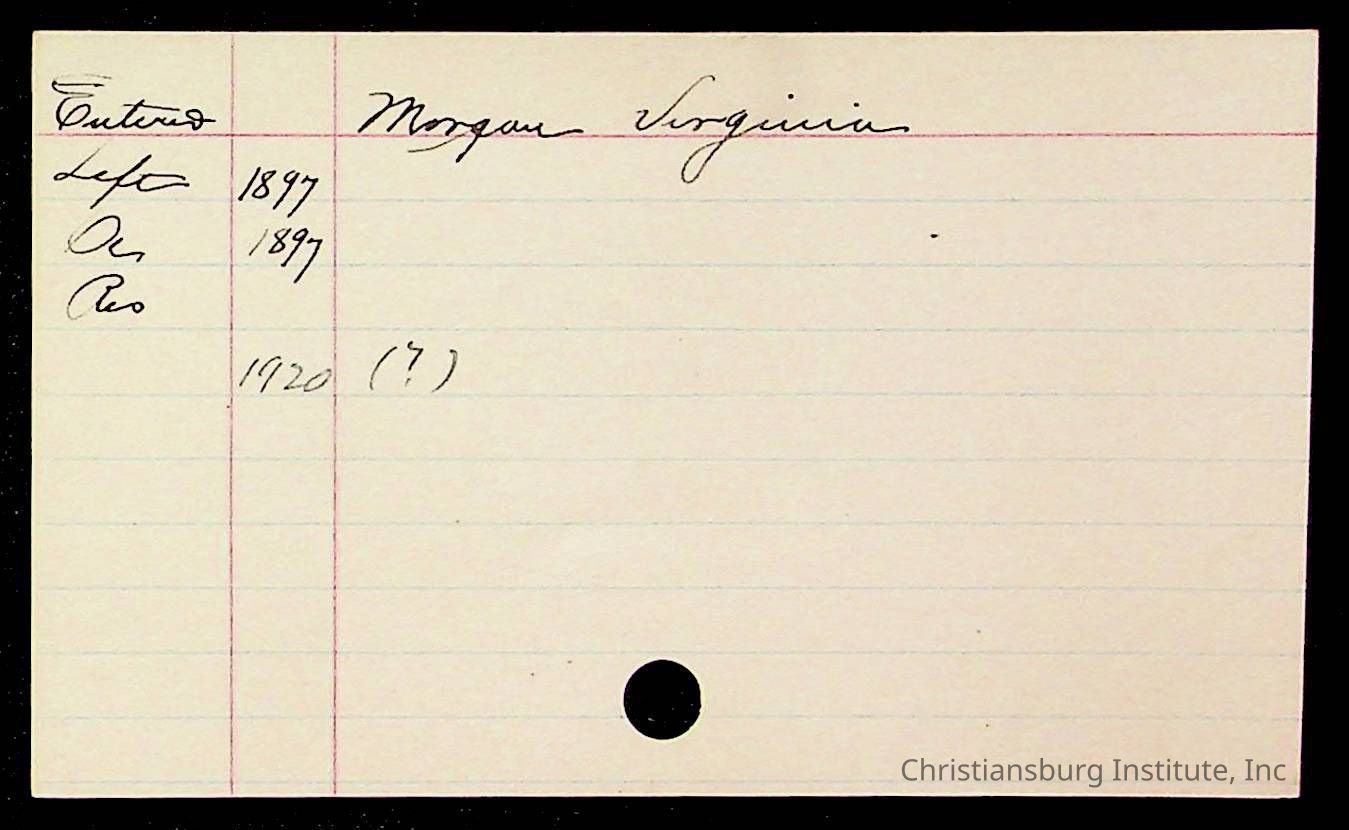 Entered Morgan Virginia
Left 1897
Oc 1897
Res
1920 (?)
Christiansburg Institute, Inc